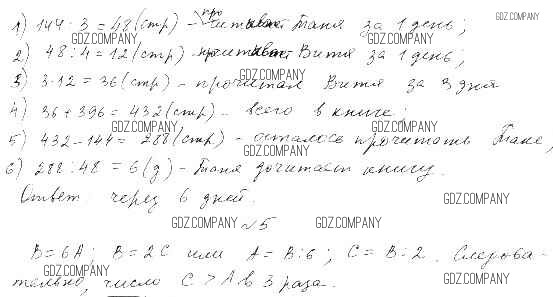 1) 144 : 3 = 48 (стр) – прочитывает Таня за 1 день;
GDZ.COMPANY
GDZ.COMPANY
GDZ.COMPANY
2) 48 : 4 = 12 (стр) – прочитывает Витя за 1 день;
GDZ.COMPANY
3) 3·12 = 36 (стр) – прочитал Витя за 3 дня
4) 36 + 396 = 432 (стр) – всего в книге;
GDZ.COMPANY
GDZ.COMPANY
5) 432 – 144 = 288 (стр) – осталось прочитать Тане;
GDZ.COMPANY
6) 288 : 48 = 6 (д) – Таня дочитает книгу.
Ответ: через 6 дней.
GDZ.COMPANY
GDZ.COMPANY
№5
GDZ.COMPANY
B = 6A; B = 2C или A = B : 6; C = B : 2. Следова-
GDZ.COMPANY
GDZ.COMPANY
тельно, число C > A в 3 раза.